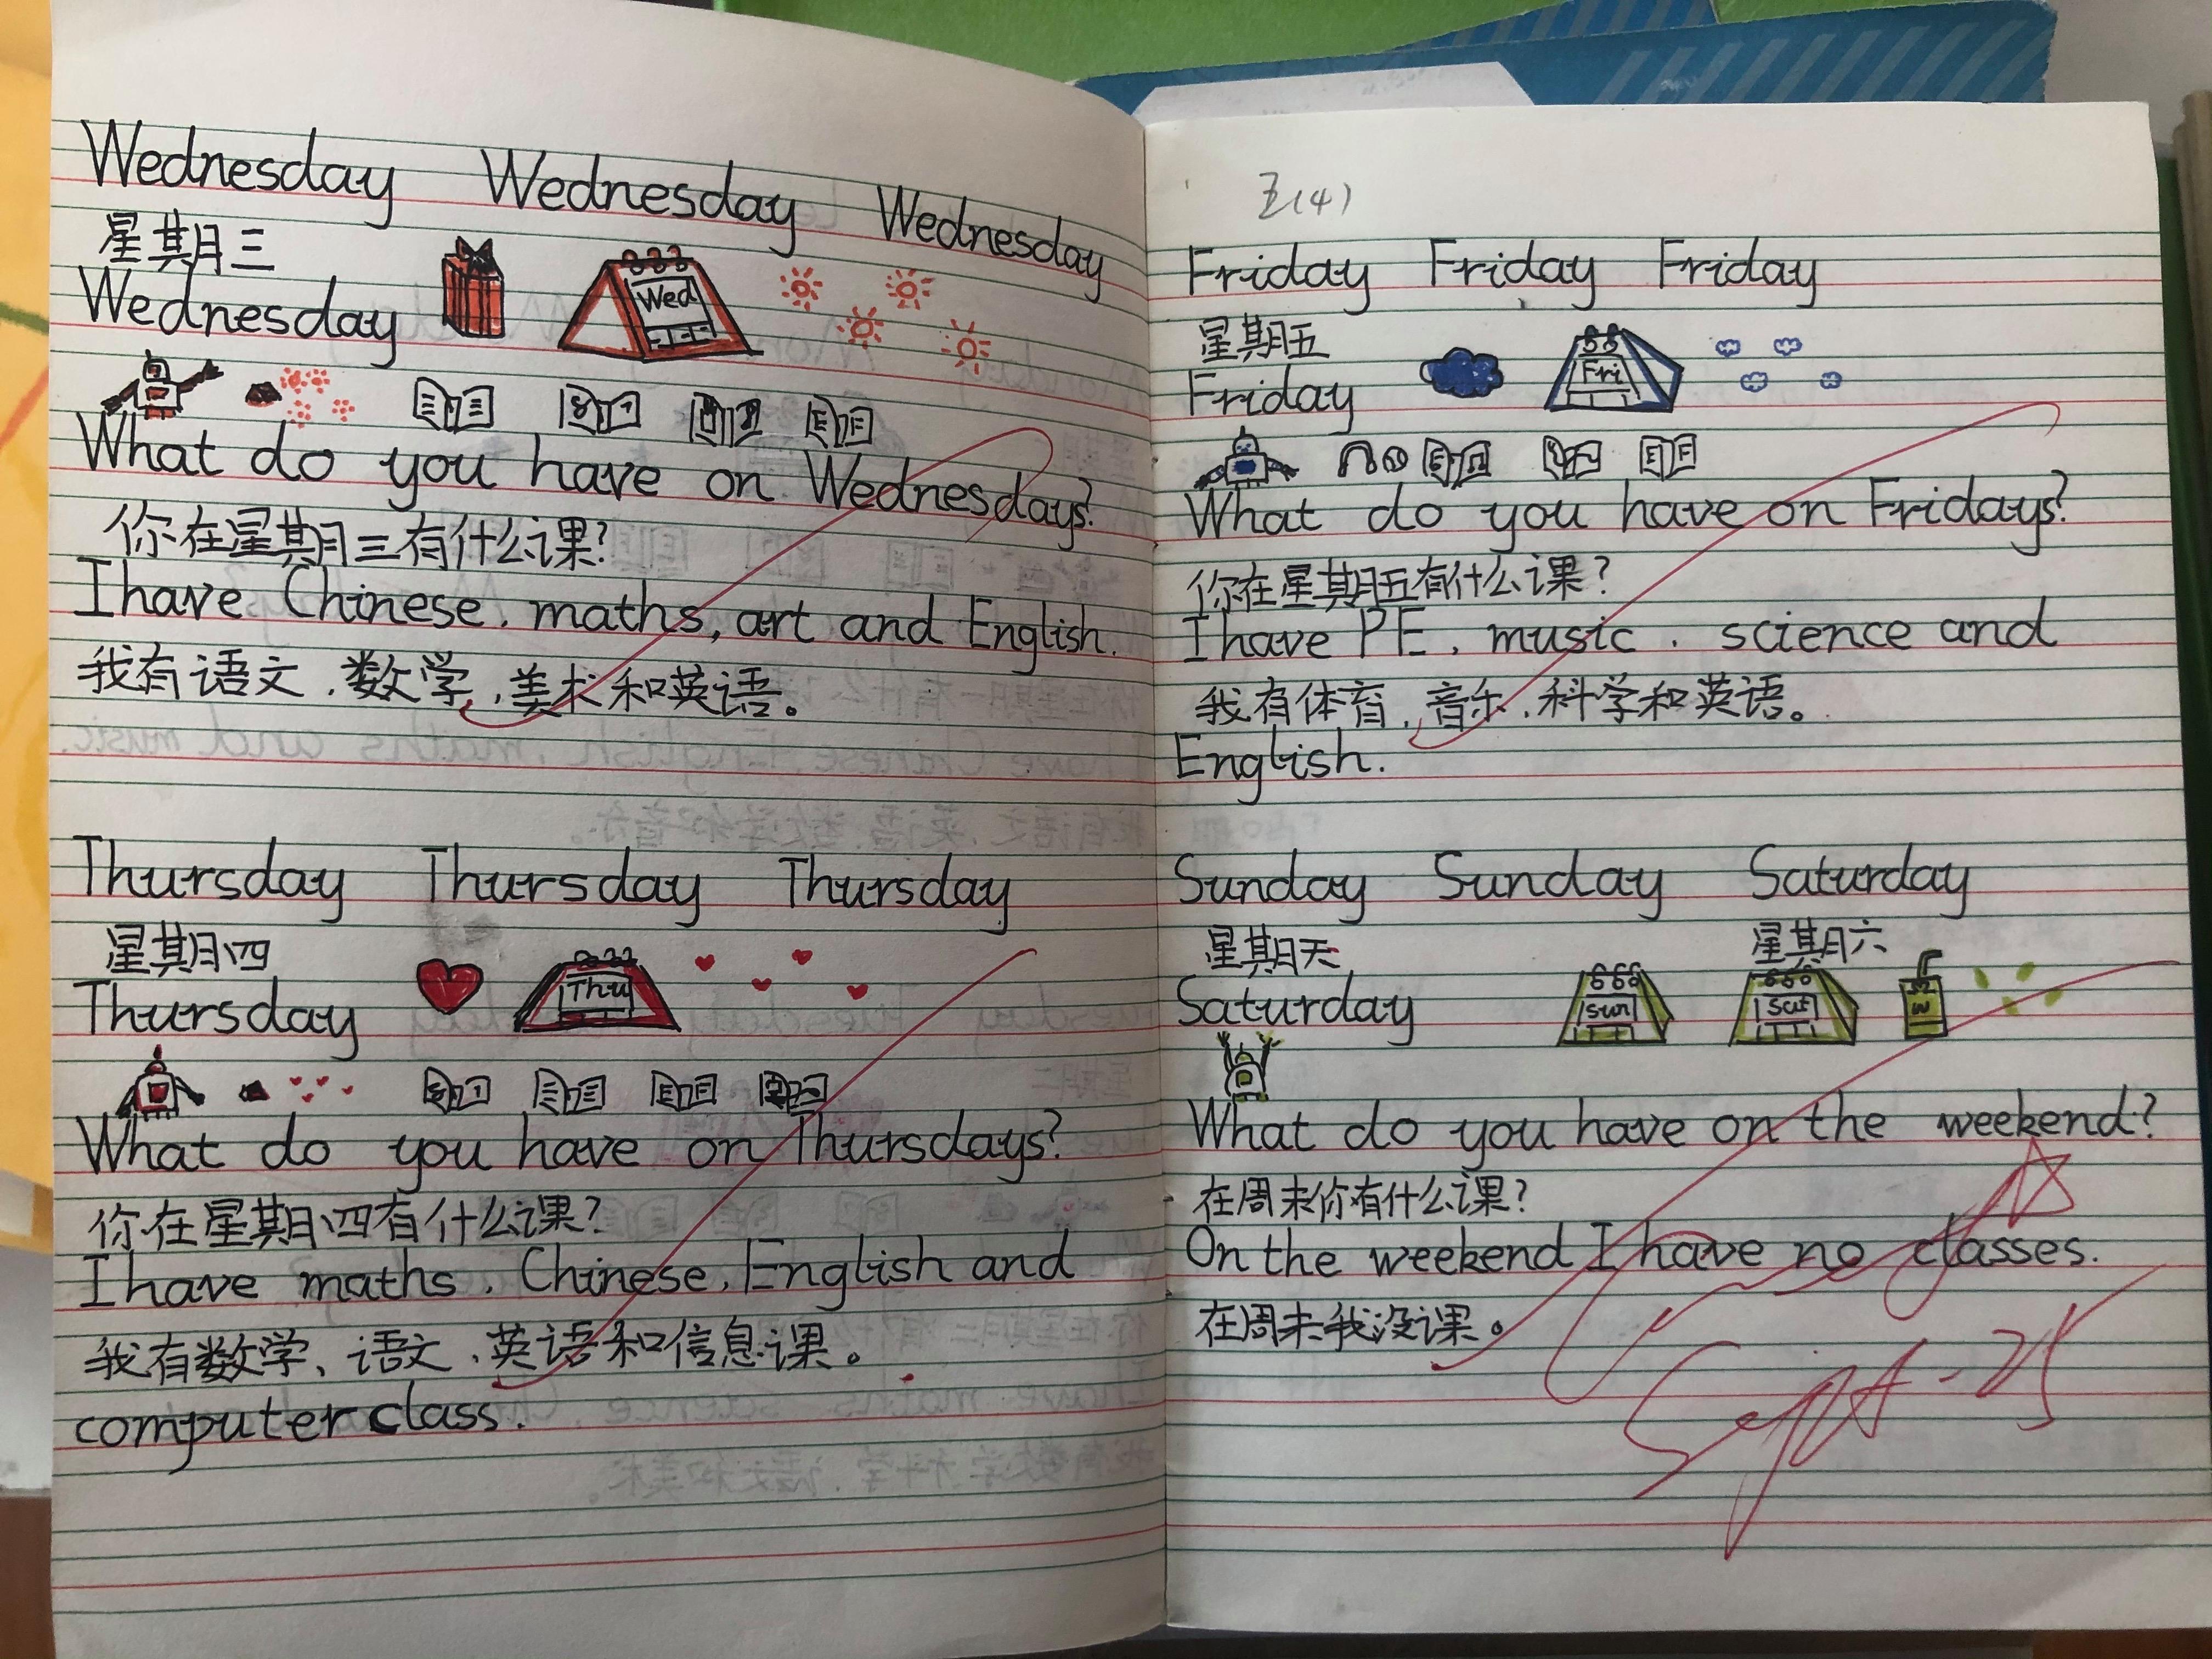 Wednesday Wednesday Wednesday
星期三
Wednesday
Wed
What do you have on Wednesdays?
你在星期三有什么课?
I have Chinese, maths, art and English.
我有语文、数学、美术和英语。
Thursday Thursday Thursday
星期四
Thursday
Thu
What do you have on Thursdays?
你在星期四有什么课?
I have maths, Chinese, English and
我有数学、语文、英语和信息课。
computer class.
(4)
Friday Friday Friday
星期五
Friday
Fri
What do you have on Fridays?
你在星期五有什么课?
I have PE, music, science and
我有体育、音乐、科学和英语。
English.
Sunday Sunday Saturday
星期天 星期六
Saturday
sun sat
What do you have on the weekend?
在周末你有什么课?
On the weekend I have no classes.
在周末我没课。
Sept-25